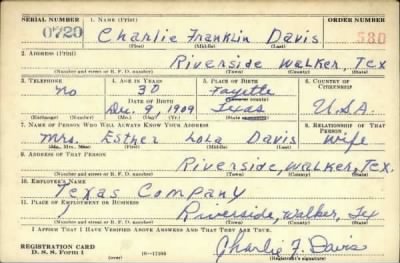 SERIAL NUMBER 1. NAME (Print) ORDER NUMBER
0720 Charlie Franklin Davis 580
(First) (Middle) (Last)
2. ADDRESS (Print)
Riverside Walker, Tex
(Number and street or R. F. D. number) (Town) (County) (State)
3. TELEPHONE 4. AGE IN YEARS 5. PLACE OF BIRTH 6. COUNTRY OF CITIZENSHIP
no 30 Fayette
DATE OF BIRTH (Town or county)
Dec. 9, 1909 Texas U.S.A.
(Exchange) (Number) (Mo.) (Day) (Yr.) (State or country)
7. NAME OF PERSON WHO WILL ALWAYS KNOW YOUR ADDRESS 8. RELATIONSHIP OF THAT PERSON
Mrs. Esther Lola Davis Wife
(Mr., Mrs., Miss) (First) (Middle) (Last)
9. ADDRESS OF THAT PERSON
Riverside, Walker, Tex.
(Number and street or R. F. D. number) (Town) (County) (State)
10. EMPLOYER'S NAME
Texas Company
11. PLACE OF EMPLOYMENT OR BUSINESS
Riverside, Walker, Tex
(Number and street or R. F. D. number) (Town) (County) (State)
I AFFIRM THAT I HAVE VERIFIED ABOVE ANSWERS AND THAT THEY ARE TRUE.
REGISTRATION CARD
D. S. S. Form 1 (over) 16-17105 Charlie F. Davis
(Registrant's signature)